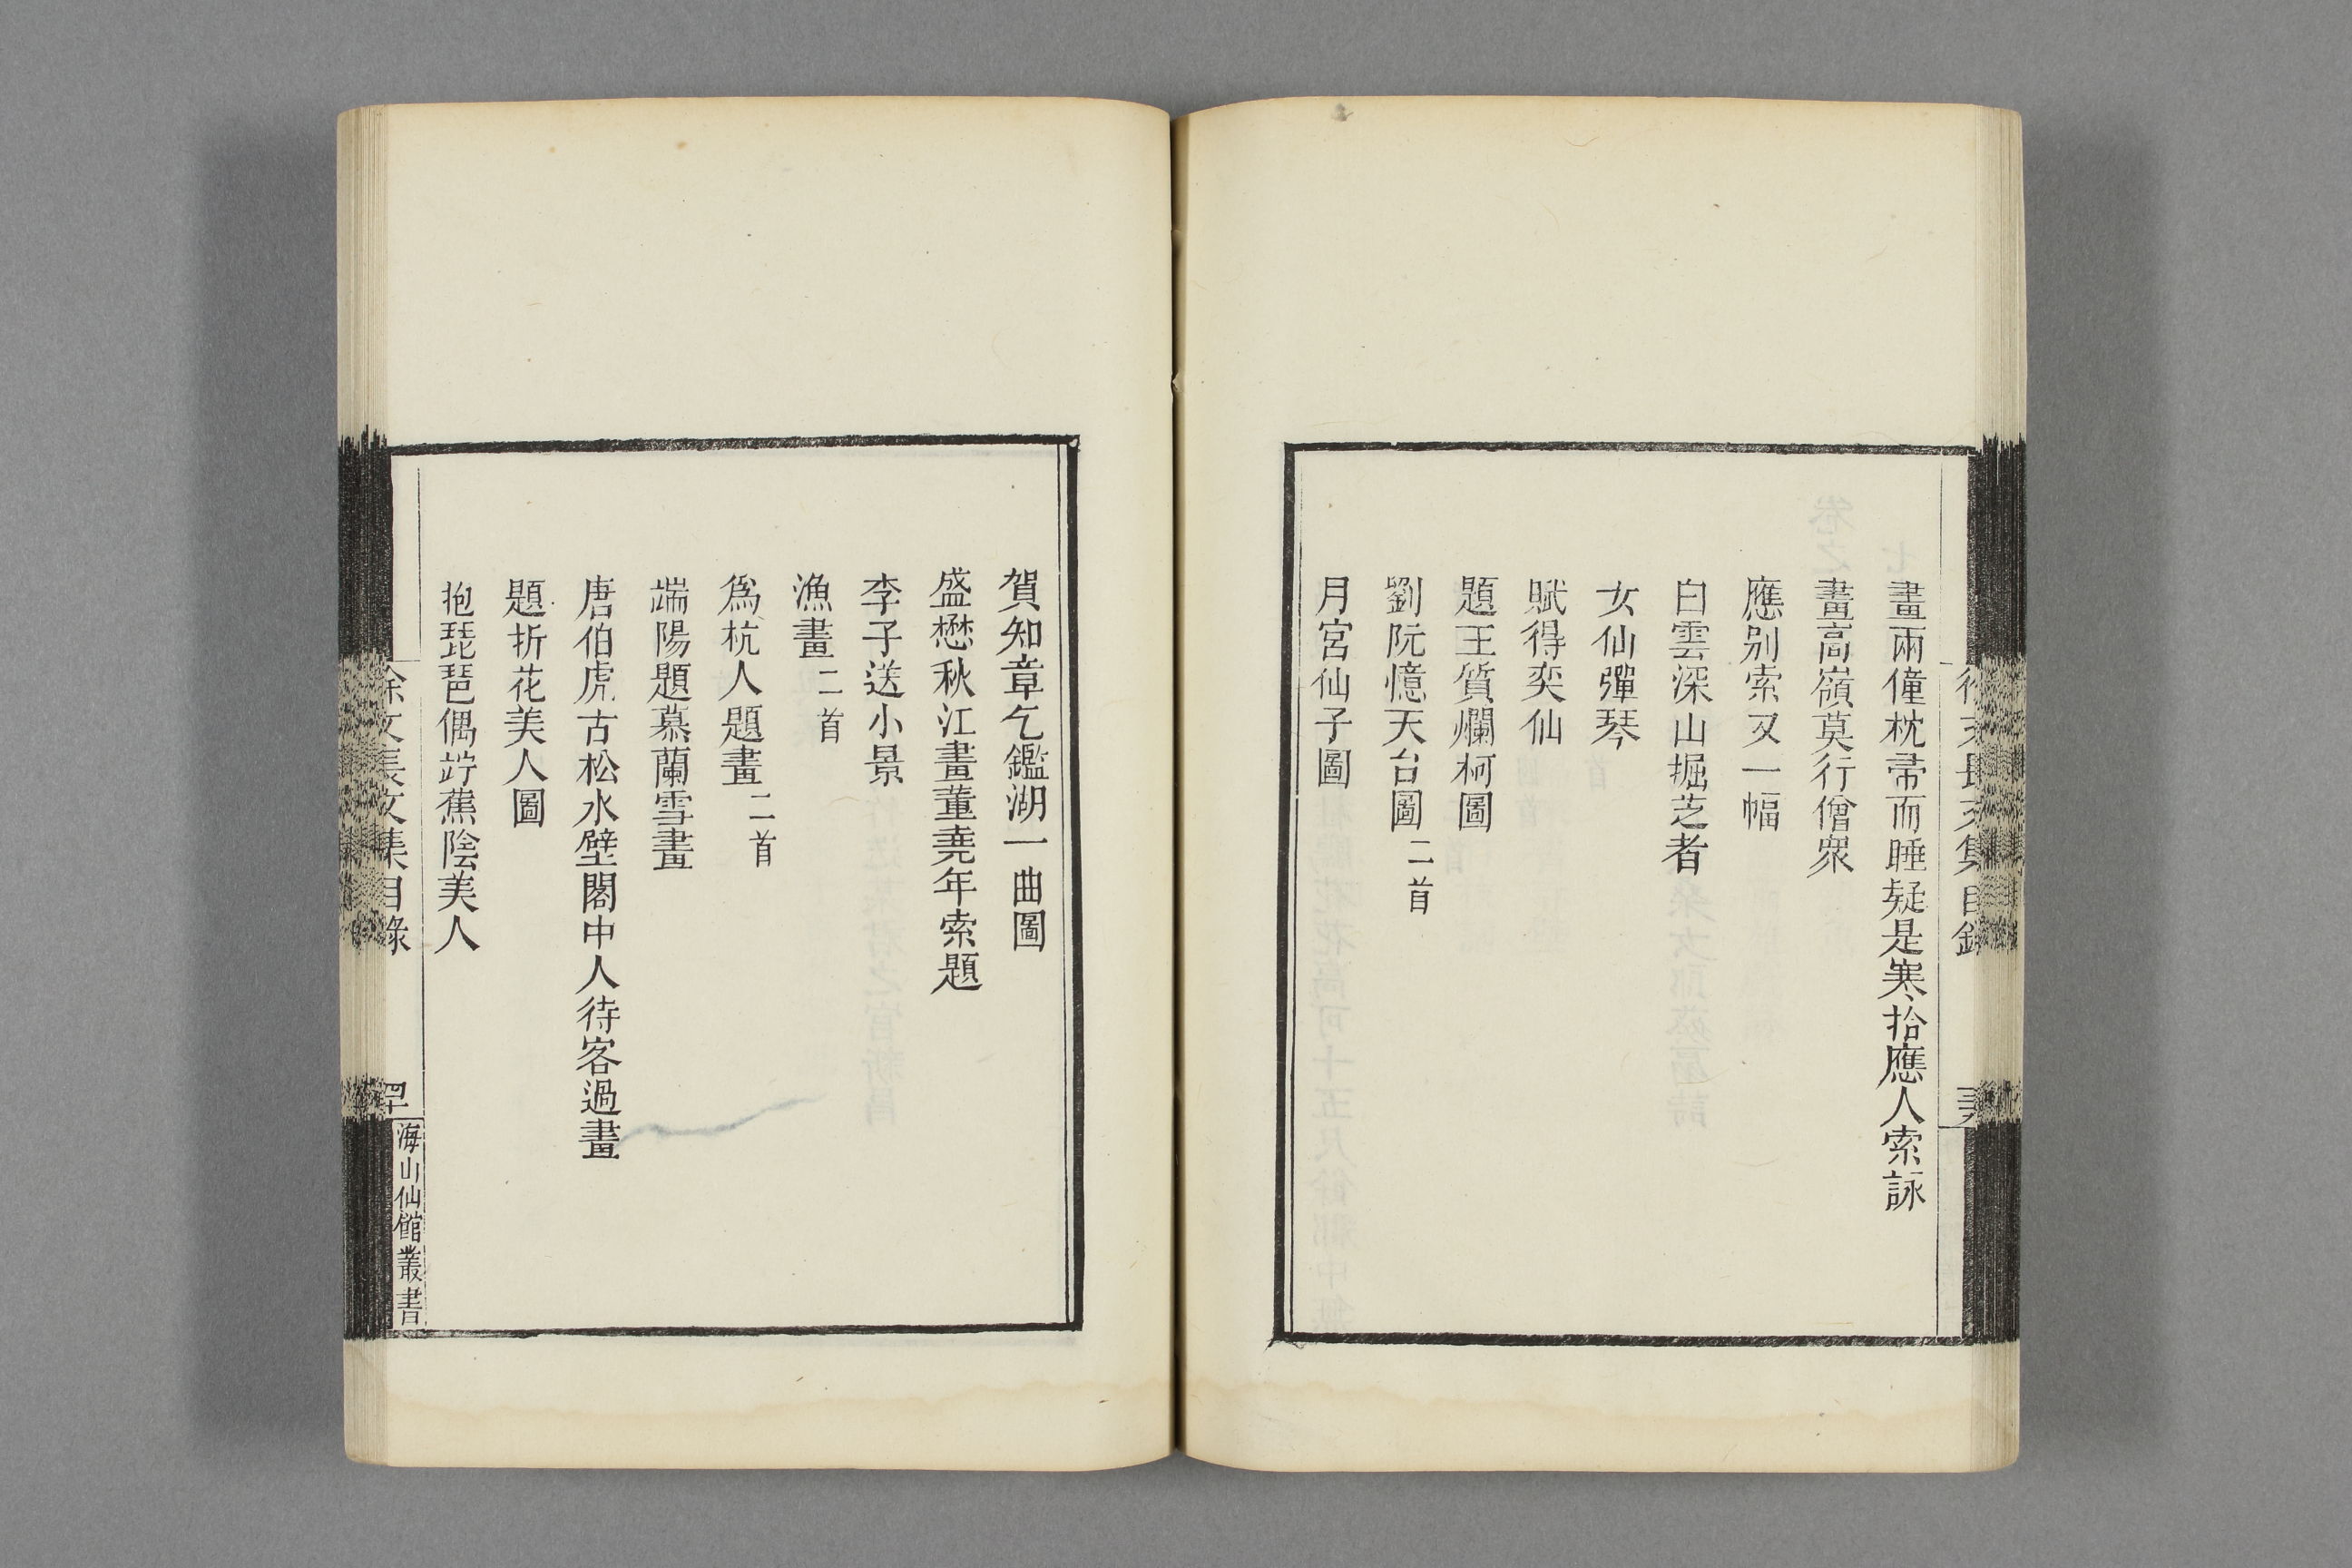 畫兩僮枕帚而睡疑是寒拾應人索詠
畫高嶺莫行僧衆
應别索又一幅
白雲深山掘芝者
女仙彈琴
賦得奕仙
題王質爛柯圖
劉阮憶天台圖二首
月宮仙子圖
賀知章乞鑑湖一曲圖
盛懋秋江畫董堯年索題
李子送小景
漁畫二首
爲杭人題畫二首
端陽題慕蘭雪畫
唐伯虎古松水壁閣中人待客過畫
題折花美人圖
抱琵琶偶竚蕉陰美人
徐文長文集目錄
海山仙館叢書